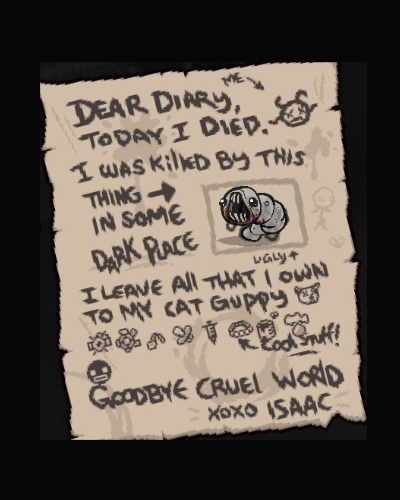 ME
DEAR DIARY,
TODAY I DIED.
I WAS KILLED BY THIS
THING
IN SOME
DARK PLACE
UGLY
I LEAVE ALL THAT I OWN
TO MY CAT GUPPY
Kool Stuff!
GOODBYE CRUEL WORLD
XOXO ISAAC